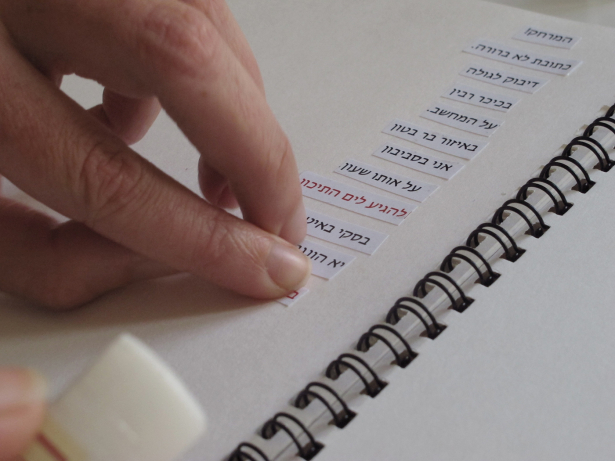 המרחק!
כתובת לא ברורה.
דיבוק לגולה
בכיכר רבין
על המחשב.
באיזור בר בטון
אני בסביבון
על אותו שעון
להגיע לים התיכון
בסקי באיל
יא